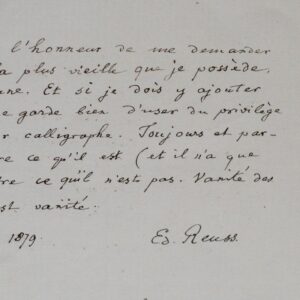 l'honneur de me demander
la plus vieille que je possède.
ne. Et si je dois y ajouter
e garde bien d'user du privilège
r calligraphe. Toujours et par-
re ce qu'il est (et il n'a que
tre ce qu'il n'est pas. Vanité des
est vanité.
1879. Ed. Reuss.